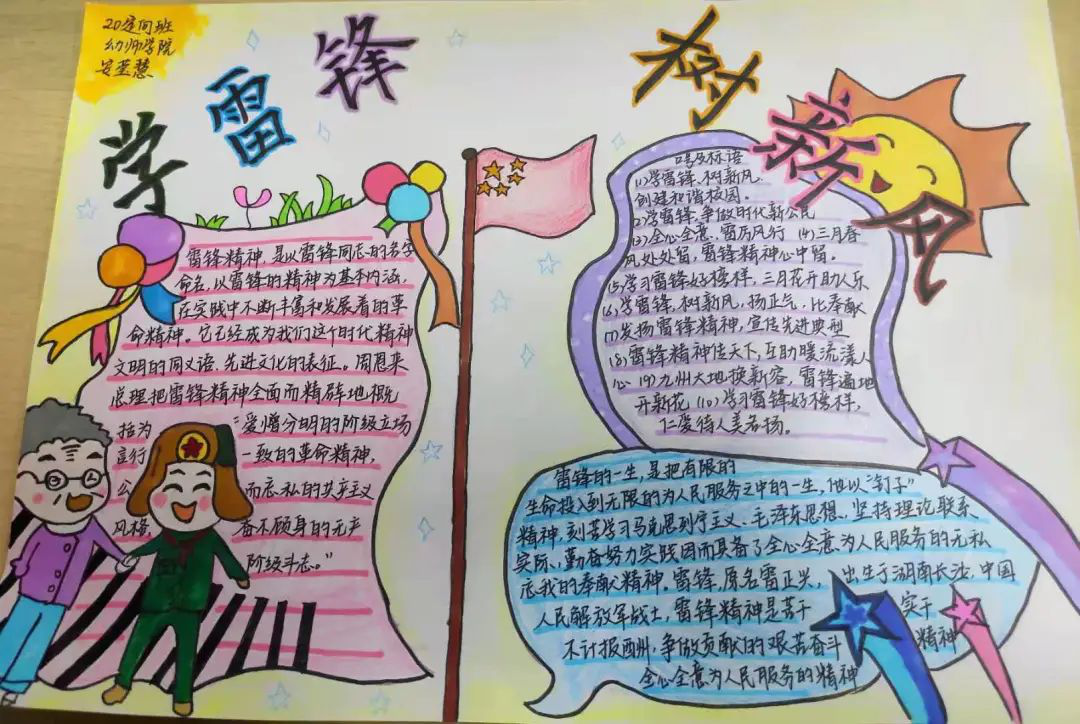 20定向班
幼师学院
安莹慧
学雷锋
树新风
雷锋精神,是以雷锋同志的名字
命名,以雷锋的精神为基本内涵,
在实践中不断丰富和发展着的革
命精神。它已经成为我们这个时代精神
文明的同义语、先进文化的表征。周恩来
总理把雷锋精神全面而精辟地概
括为 “爱憎分明的阶级立场
言行一致的革命精神,
公而忘私的共产主义
风格,奋不顾身的无产
阶级斗志。”
号及标语
(1)学雷锋、树新风,
创建和谐校园。
2)学雷锋、争做时代新公民
(3)全心全意、雷厉风行 (4)三月春
风处处留,雷锋精神心中留。
(5学习雷锋好榜样,三月花开助人乐
(6)学雷锋,树新风,扬正气,比奉献
(7)发扬雷锋精神,宣传先进典型
(8)雷锋精神传天下,互助暖流漾人
心 (9)九州大地换新容,雷锋遍地
开新花 (10)学习雷锋好榜样,
仁爱待人美名扬。
雷锋的一生,是把有限的
生命投入到无限的为人民服务之中的一生,他以“钉子”
精神,刻苦学习马克思列宁主义、毛泽东思想、坚持理论联系
实际,勤奋努力实践因而具备了全心全意为人民服务的无私
忘我的奉献精神。雷锋,原名雷正兴, 出生于湖南长沙,中国
人民解放军战士,雷锋精神是苦干 实干
不计报酬,争做贡献的艰苦奋斗 精神
全心全意为人民服务的精神